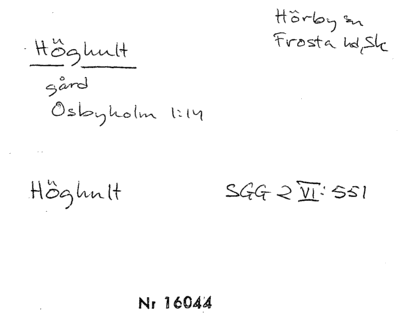 Hörby sn
Frosta hd, Sk
Höghult
gård
Osbyholm 1:14
Höghult
SGG 2 VI: 551
Nr 16044